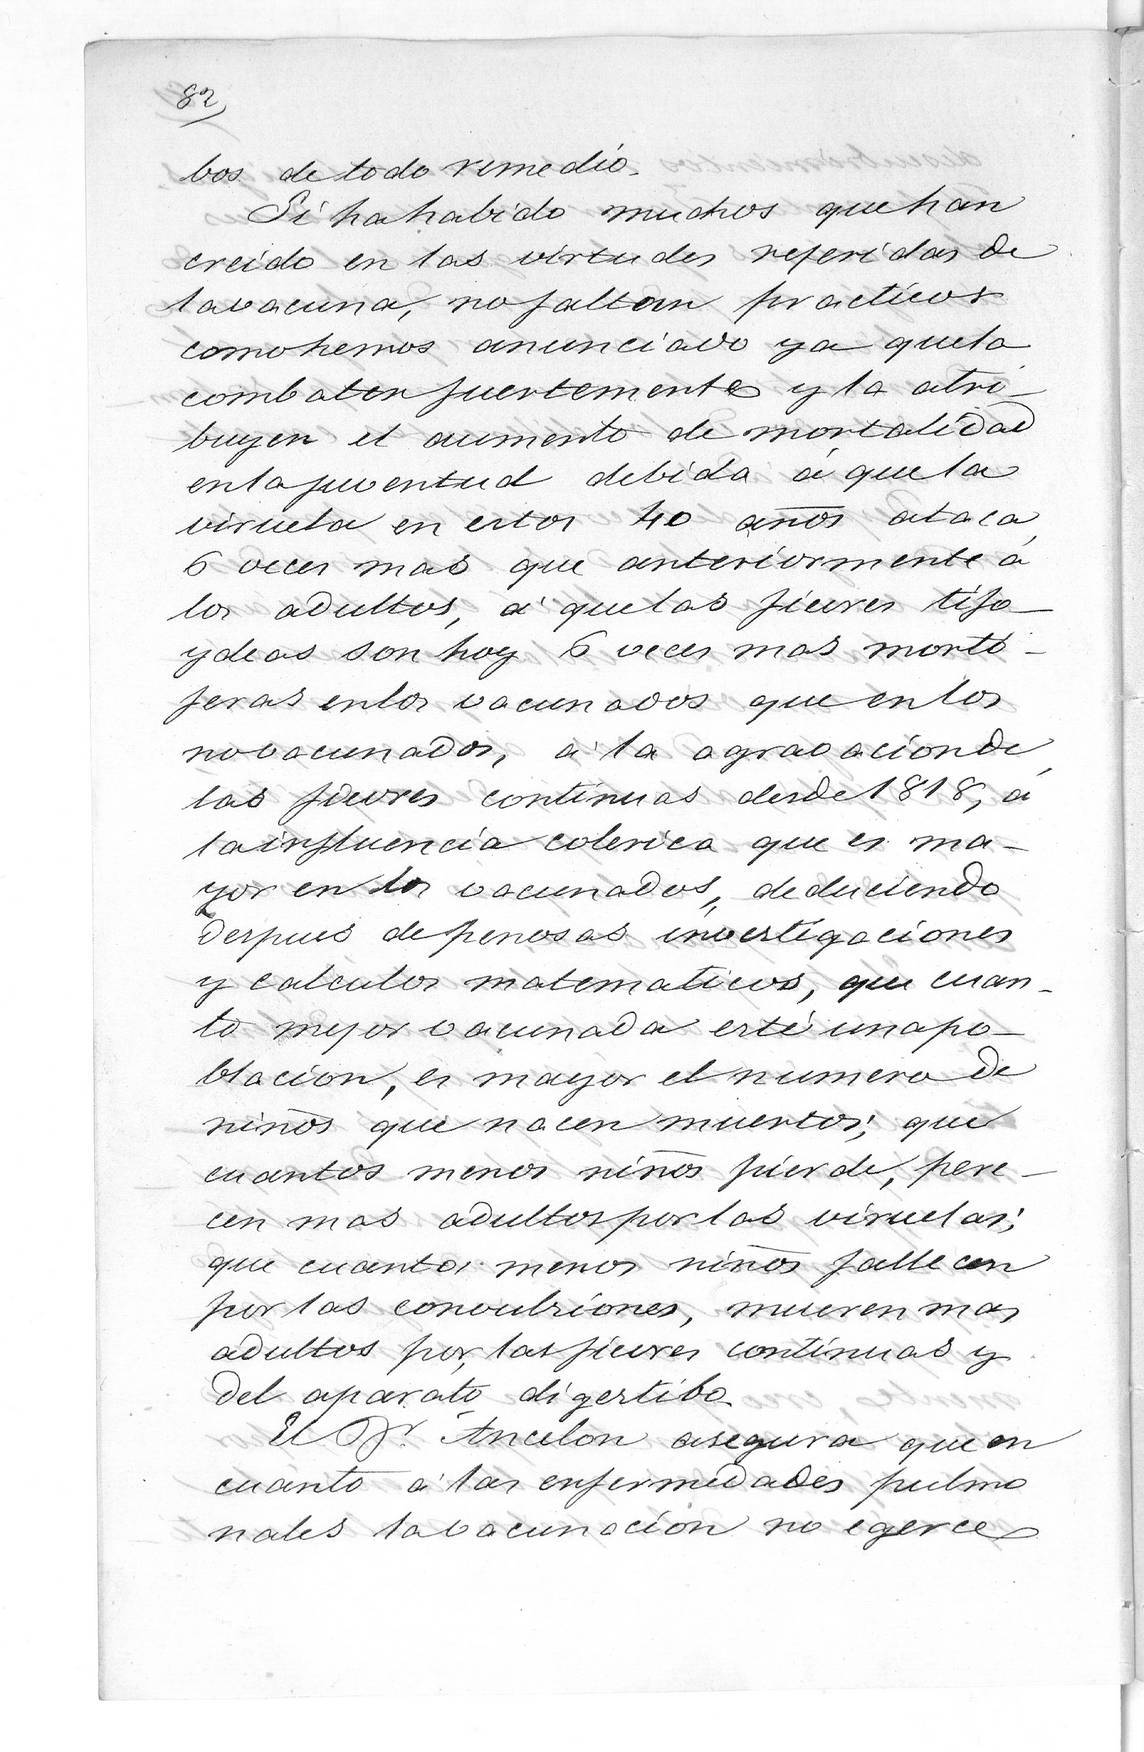 82
bos de todo remedio.
Si ha habido muchos que han
creido en las virtudes referidas de
la vacuna, no faltan practicos
como hemos anunciado ya que la
combaten fuertemente y la atri-
buyen el aumento de mortalidad
en la juventud debida á que la
viruela en estos 40 años ataca
6 veces mas que anteriormente á
los adultos, á que las fievres tifo-
ydeas son hoy 6 veces mas morti-
feras en los vacunados que en los
no vacunados, á la agravacion de
las fievres continuas desde 1818, á
la influencia colerica que es ma-
yor en los vacunados, deduciendo
despues de penosas investigaciones
y calculos matematicos, que cuan-
to mejor vacunada esté una po-
blacion, es mayor el numero de
niños que nacen muertos; que
cuantos menos niños pierde, pere-
cen mas adultos por las viruelas;
que cuantos menos niños fallecen
por las convulsiones, mueren mas
adultos por las fievres continuas y
del aparato digestibo.
El Dr. Ancelon asegura que en
cuanto á las enfermedades pulmo
nales la vacunacion no egerce